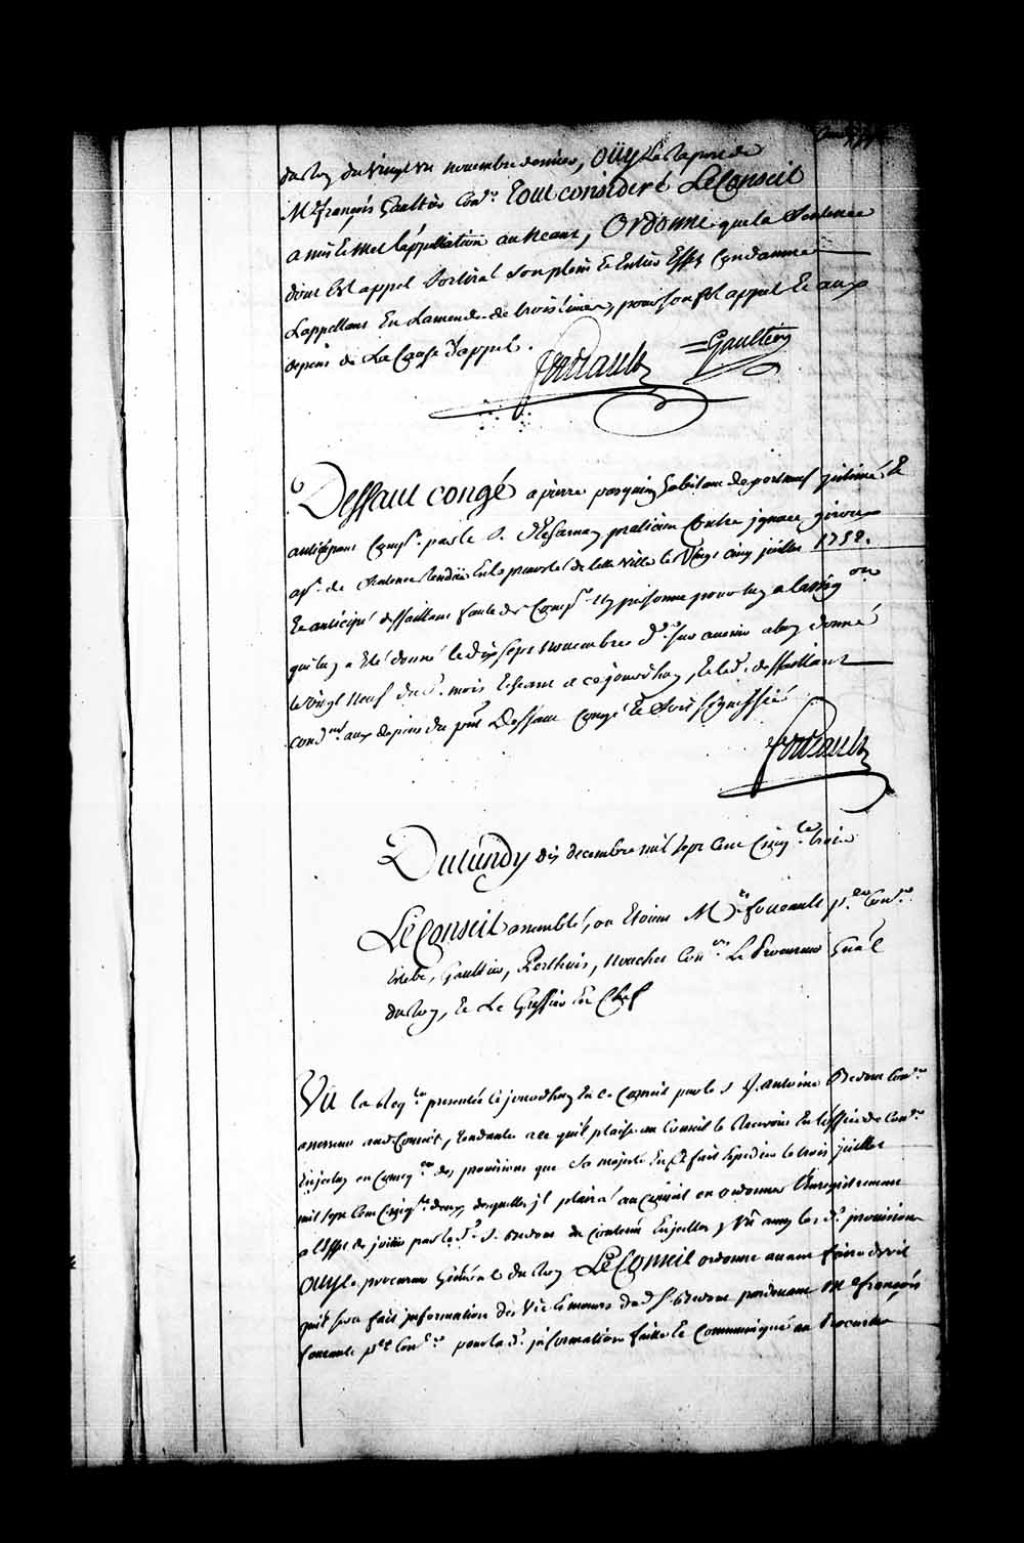 du Roy du vingt un novembre dernier, Ouy le Raport de
Me françois Gaultier Conr. Tout considéré Le Conseil
a mis et met l'appellation au neant, Ordonne que la Sentence
dont est appel Sortira Son plein et Entier Effet Condamne
L'appellant En L'amende de trois livres pour son fol appel Et aux
depens de La Cause d'appel.
foucault Gaultier
Deffaut congé a pierre pasquin habitant de portneuf intimé et
anticipant Comp. par le S. praticien Contre ignace giroux
ap. de Sentence Rendüe En la prevosté de cette ville le Vingt cinq juillet 1752.
Et anticipé deffaillant faute de Comp. ny personne pour luy a l'assigon
qui luy a Eté donné le dix sept novembre dr. sur avenir a luy donné
le vingt neuf du d. mois Echeant a ce jourd'huy, Et led. deffaillant
condné aux depens du pnt Deffaut Congé Et Soit Signiffié
foucault
Du Lundy dix decembre mil sept Cent Cinqte trois
Le Conseil assemblé, ou Etoient Mes foucault per Conr
Gaultier, Perthuis, nouchet Conrs Le Procureur Gnál
du Roy, Et Le Greffier En Chef
Vu la Reqte presentée cejourd'huy En ce Conseil par le S J. antoine Bedout Conr
assesseur aud Conseil, tendante a ce qu'il plaise au Conseil le Recevoir En l'office de Conr
En jceluy en Conseqce des provisions que Sa majesté En a fait Expedier le trois juillet
mil sept Cent Cinqte deux desquelles jl plaira au Conseil en ordonner l'Enregistrement
a l'Effet de joüir par le d. S. Bedout du Contenu En jcelles, Vû aussy les d. provisions
Ouy le procureur Général du Roy Le Conseil ordonne avant faire droit
qu'il sera fait jnformation des Vie Et moeurs dud S. Bedout pardevant Me françois
foucault per Conr pour la d. jnformation faite Et Communiquée au Procureur